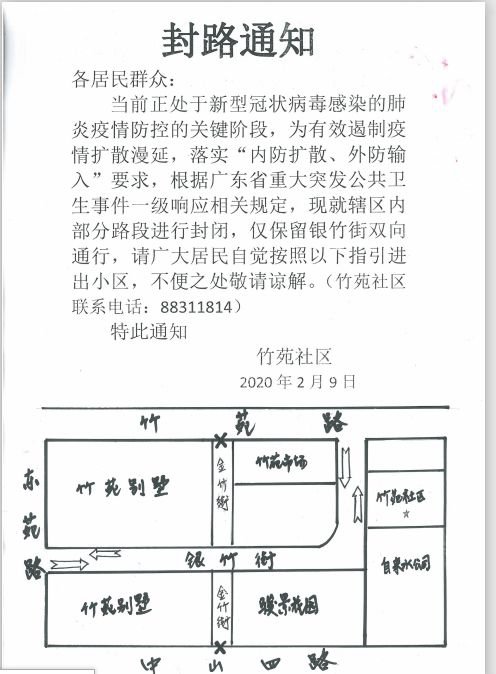 封路通知
各居民群众：
当前正处于新型冠状病毒感染的肺
炎疫情防控的关键阶段，为有效遏制疫
情扩散漫延，落实“内防扩散、外防输
入”要求，根据广东省重大突发公共卫
生事件一级响应相关规定，现就辖区内
部分路段进行封闭，仅保留银竹街双向
通行，请广大居民自觉按照以下指引进
出小区，不便之处敬请谅解。（竹苑社区
联系电话：88311814）
特此通知
竹苑社区
2020 年 2 月 9 日
竹 苑 路
东苑路
竹苑别墅
金竹街
竹苑市场
竹苑社区
银竹街
自来水公司
竹苑别墅
金竹街
骏景花园
中山四路